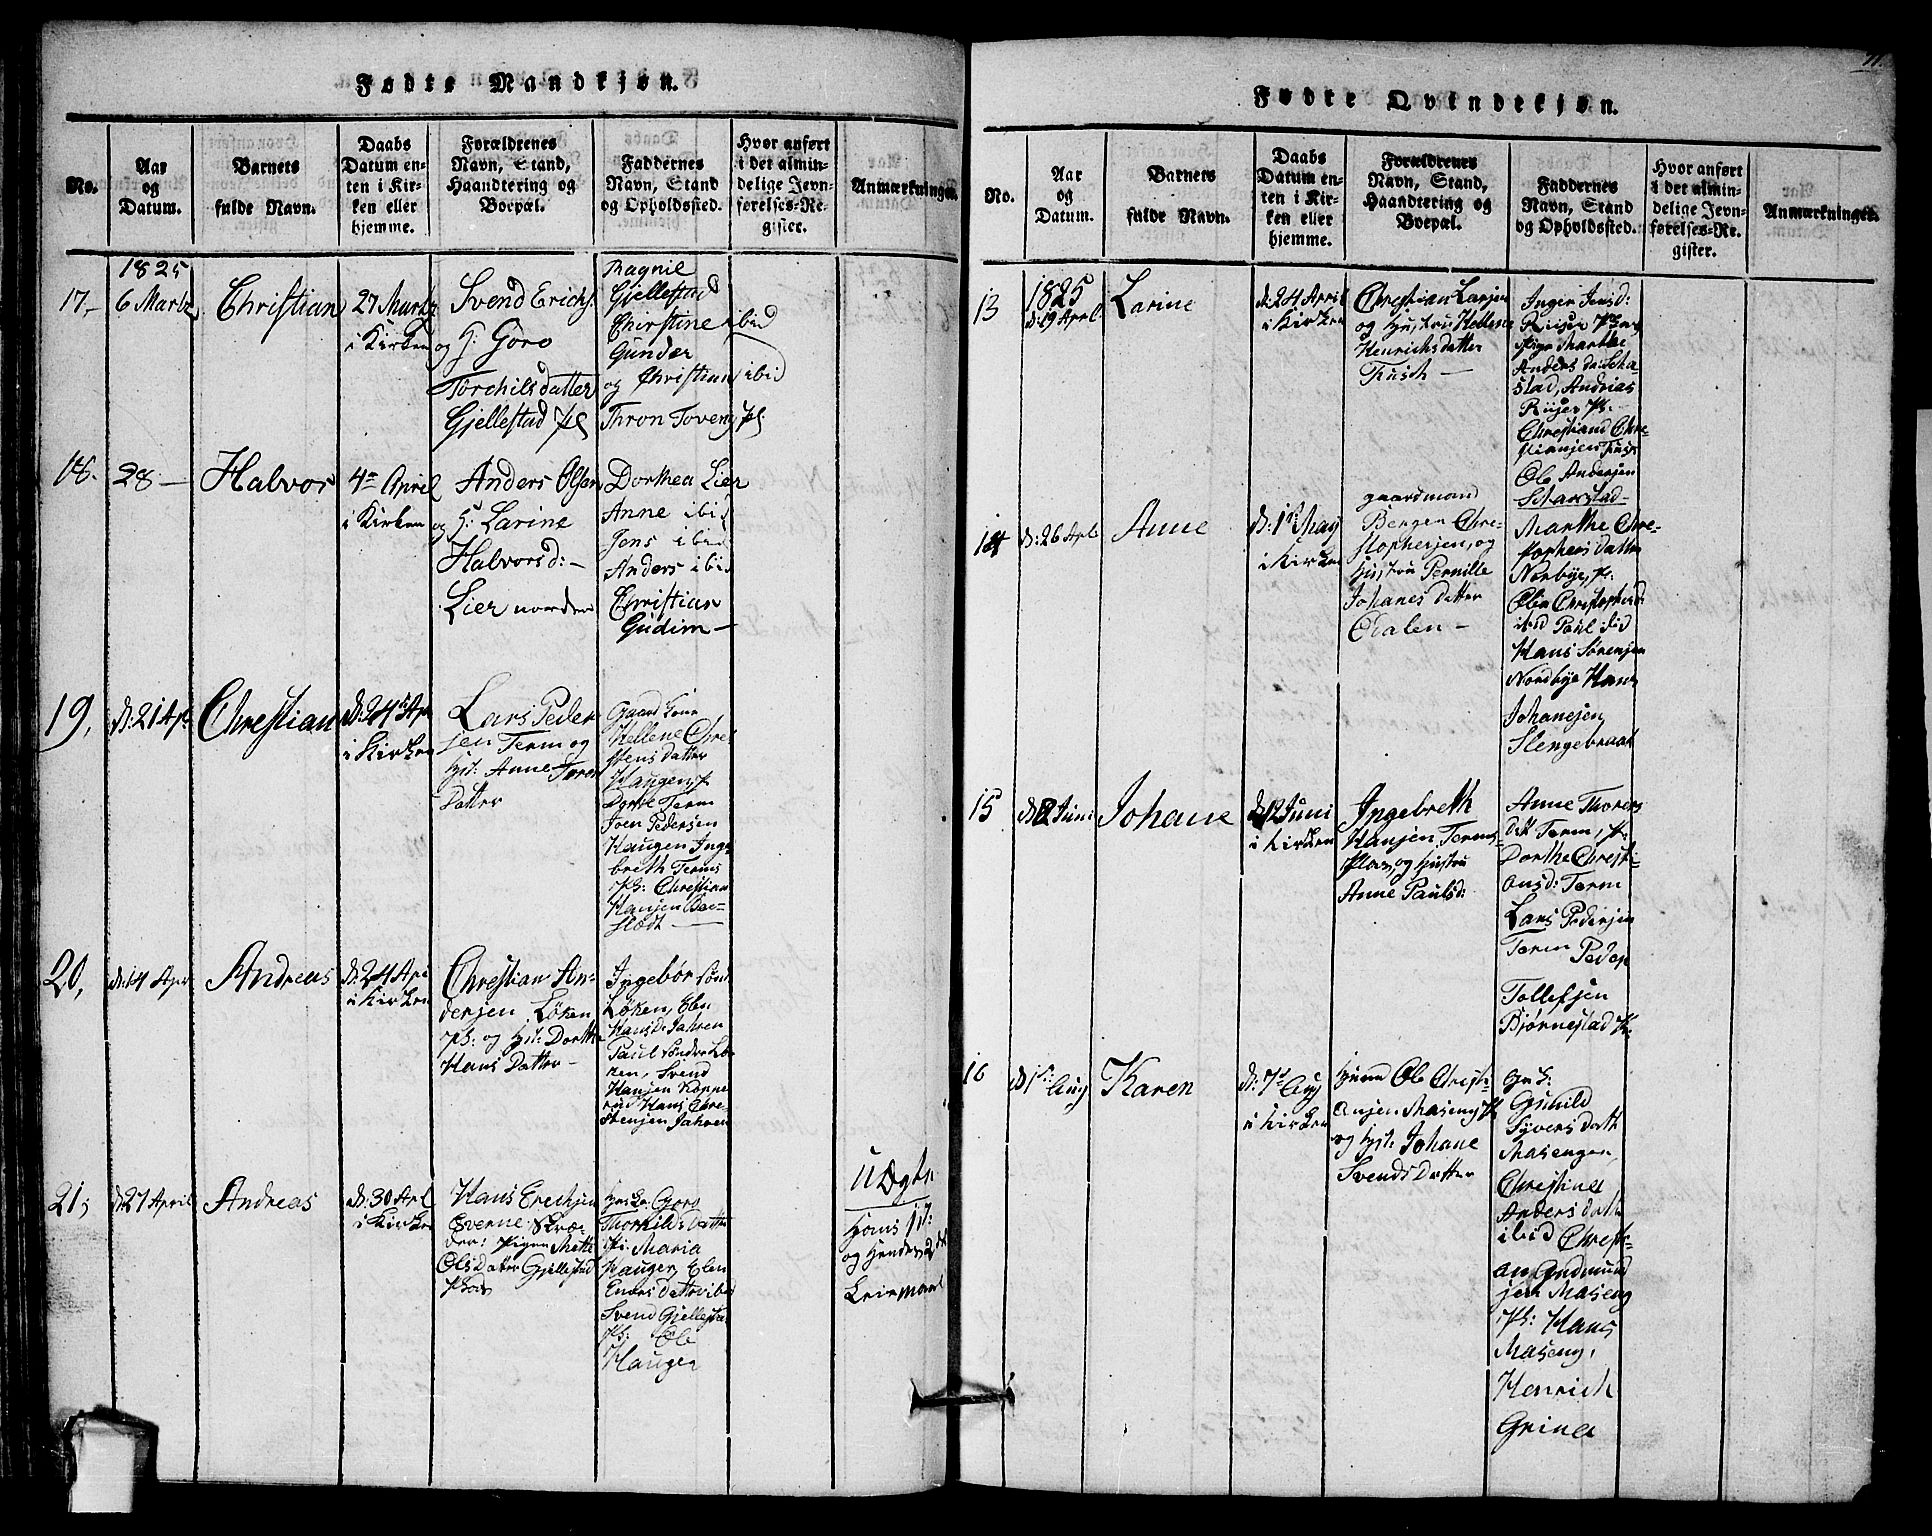 Fødte Mandkjøn.
No.
Aar
og
Datum.
Barnets
fulde Navn.
Daabs
Datum en-
ten i Kir-
ken eller
hjemme.
Forældrenes
Navn, Stand,
Haandtering og
Boepæl.
Faddernes
Navn, Stand
og Opholdssted.
Hvor anført
i det almin-
delige Jevn-
førelses-Re-
gister.
Anmærkninger.
17-
1825
6 Marts
Christian
27 Marts
i Kirken
Svend Erichs.
og H: Goro
Torchilsdatter
Gjellestad
Ragnil
Gjellestad
Christine ibid
Gunder
og Christian ibid
Thron Toveng
18.
28 -
Halvor
4de April
i Kirken
Anders Olsen
og H: Larine
Halvorsd: -
Lier nordre
Dorthea Lier
Anne ibid
Jens ibid
Anders ibid
Christian
Gudim -
19,
d: 21 Ap:
Chrestian
d: 24de Apr
i Kirken
Lars Peder
sen Term og
Hst: Anne Tores
Datter
Gaard Kone
Hellene Chre-
stens Datter
Haugen
Dorte Term
Joen Pedersen
Haugen Inge
breth Terms
Ps: Chrestian
Hansen Bae-
flødt -
20,
d: 14 Apr
Andreas
d: 24 Apr
i Kirken
Chrestian An-
dersen Løken
Ps: og Hst: Dorthe
Hans Datter -
Ingebør Sønd
Løken, Elen
Hansd: Jahren
Paul Sønder Lø-
ken, Svend
Hansen Koppe
rud Hans Chre-
stensen Jahren
21,
d: 27 April
Andreas
d: 30 Apl
i Kirken
Hans Erechsen
Everne Skræ-
der: Pigen Mette
Ols Dater Gjellestad
Goro
Thorkilds Datter
Pi: Maria
Haugen, Elen
Eners Datter ibid
Svend Gjellestad
Ps: Ole
Haugen
U Ægte
Hans 1st:
og Hendes 2det
Leiermaal
Fødte Qvindekjøn.
No.
Aar
og
Datum.
Barnets
fulde Navn.
Daabs
Datum en-
ten i Kir-
ken eller
hjemme.
Forældrenes
Navn, Stand,
Haandtering og
Boepæl.
Faddernes
Navn, Stand
og Opholdssted.
Hvor anført
i det almin-
delige Jevn-
førelses-Re-
gister.
Anmærkninger.
13
1825
d: 19 Apl
Larine
d: 24 April
i Kirken
Chrestian Larsen
og Hustru Hellene
Henrichsdatter
Tusch -
Inger Jensd:
Riiser
Pige Marthe
Anders d: Scha-
stad, Andreas
Riiser Ps:
Chrestiand Chre-
stiansen Tusch
Ole Andersen
Scharstad -
14
d: 26 Apl
Anne
d: 1st May
i Kirken
gaardmand
Bergen Chre-
stophersen, og
Hustru Pernille
Johanes datter
Odalen -
Marthe Chre-
stophers datter
Norbye, p:
Olia Christophersd:
ibid Paul ibid
Hans Sørensen
Nordbye Hans
Johanesen
Slengebraat
15
d: 2 Juni
Johane
d: 12 Juni
i Kirken
Ingebreth
Hansen, Terms
Plads, og Hustru
Anne Paulsd:
Anne Thorers
datt Term, p:
Dorthe Chresti-
ansd: Term
Lars Pedersen
Term Peder
Tollefsen
Bjørnestad
16
d: 1st: Aug
Karen
d: 7de Aug
i Kirken
Huusmd Ole Chresti-
ansen Maseng
og Hst: Johane
Svends Datter
Gunild
Syvers datt
Masengen,
Chrestine
Anders datt
ibid Chresti-
an Gudmund
sen Maseng
Ps: Hans
Maseng,
Henrich
Grine